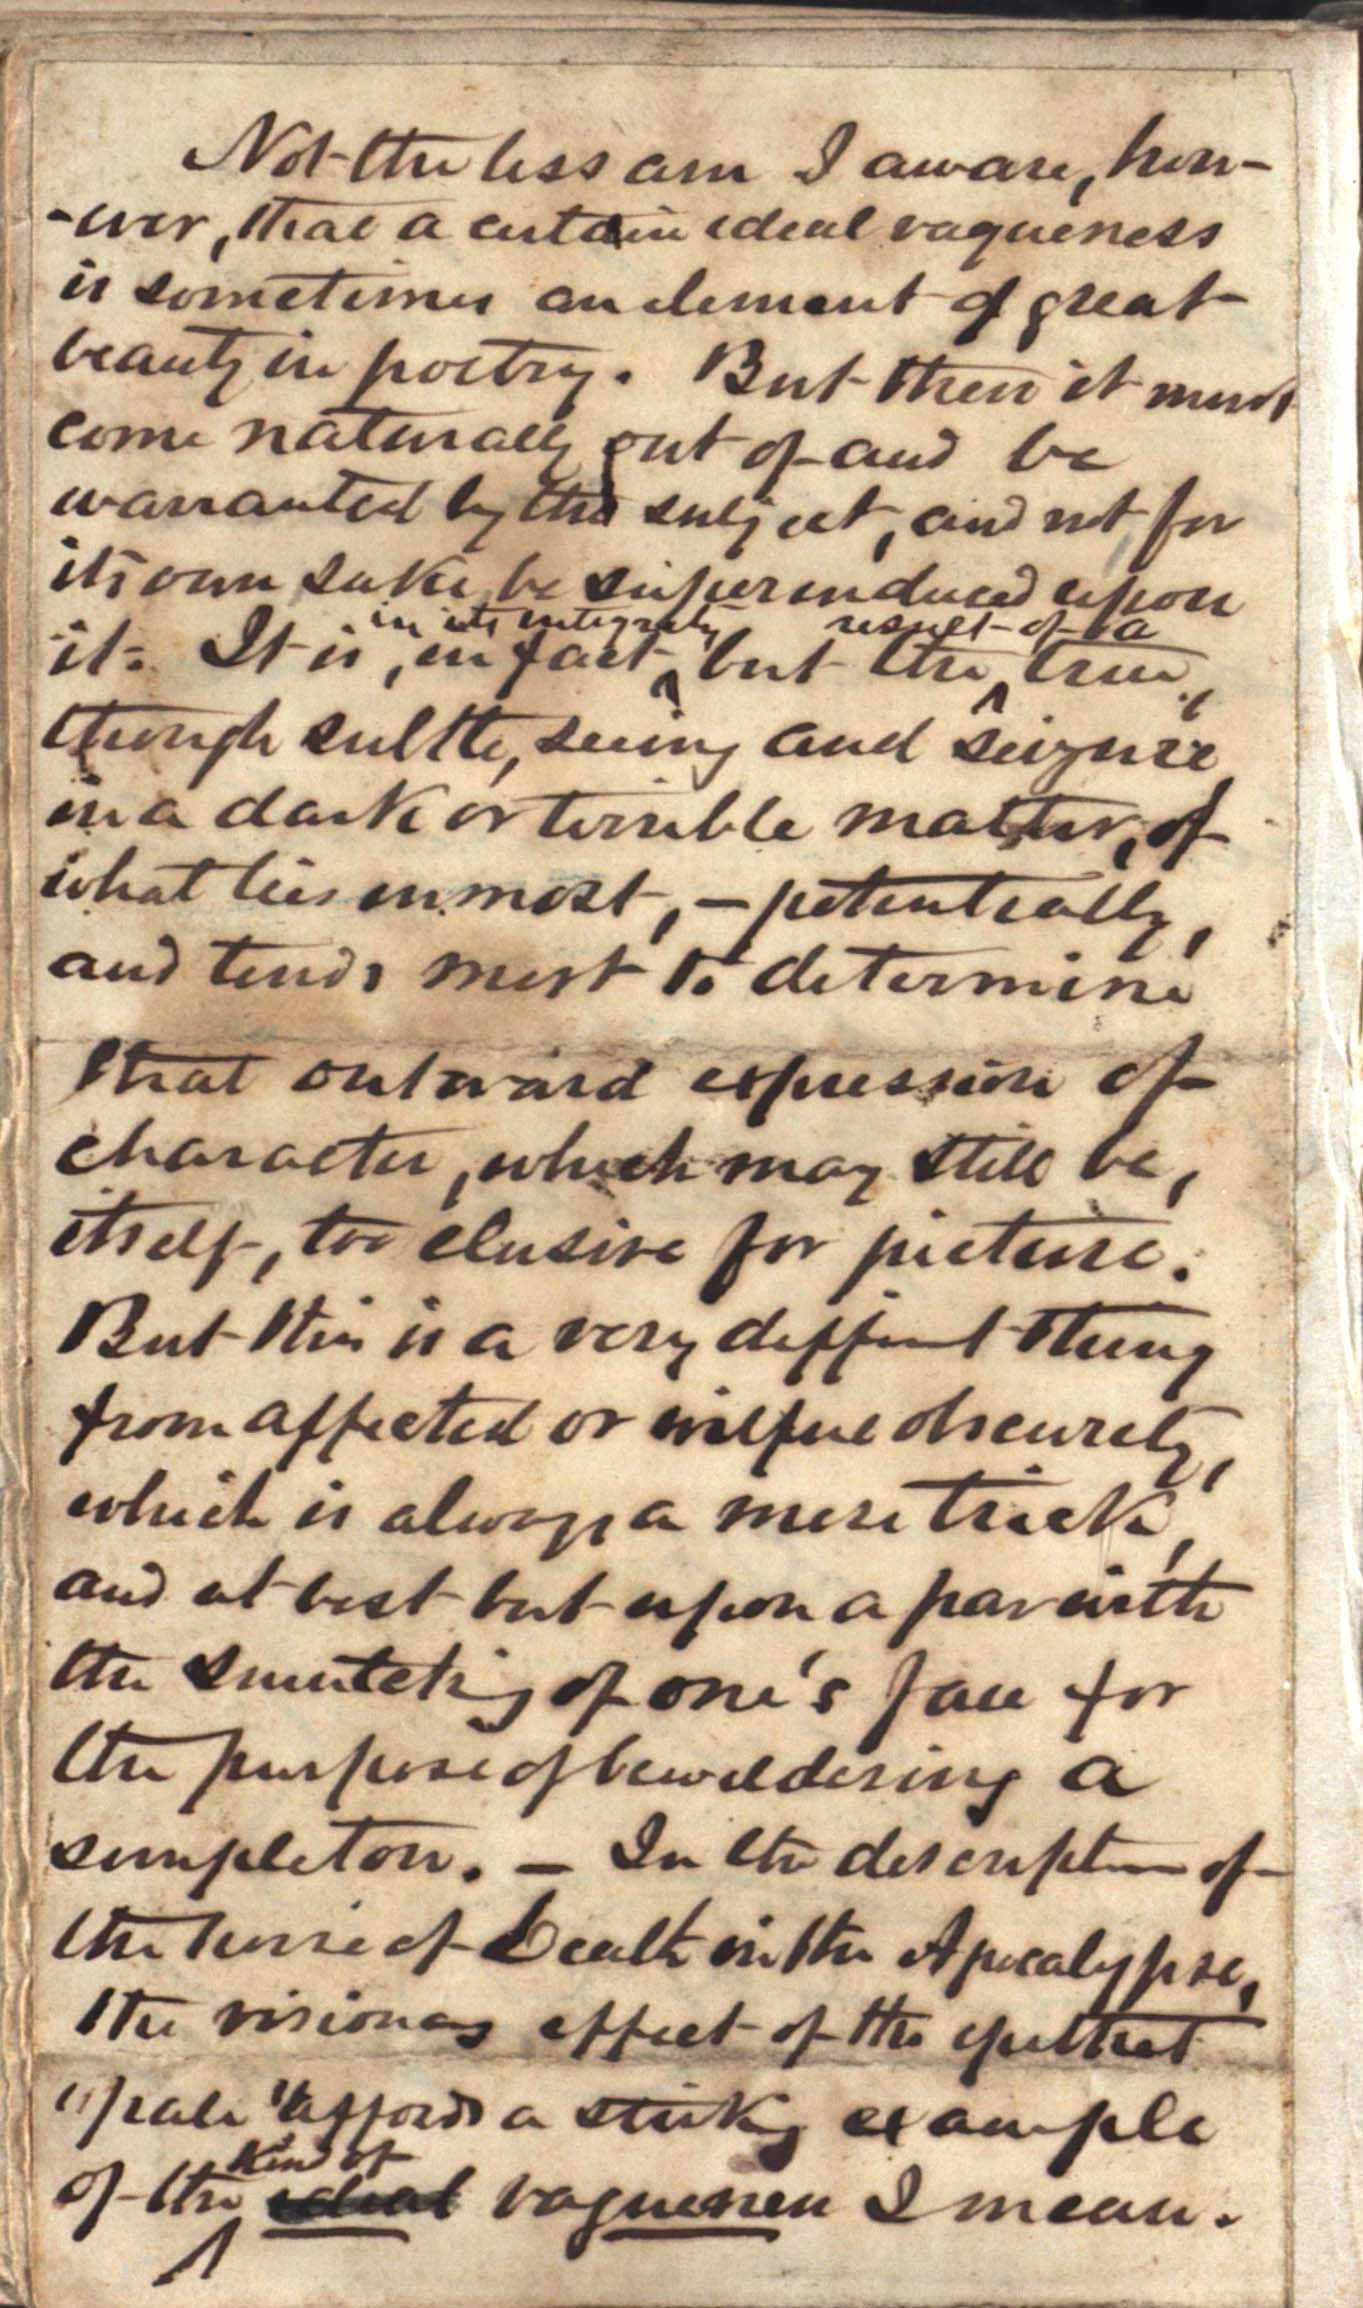 Not the less am I aware, how-
-ever, that a certain ideal vagueness
is sometimes an element of great
beauty in poetry. But then it must
come naturally out of and be
warranted by the subject, and not for
its own sake be superinduced upon
in its integrity result of a
it. It is, in fact, but the true,
though subtle, seeing and seizure
in a dark or terrible matter, of
what lies inmost, — potentially,
and tends most to determine
that outward expression of
character, which may still be,
itself, too elusive for picture.
But this is a very different thing
from affected or wilful obscurity,
which is always a mere trick,
and at best but upon a par with
the smutching of one's face for
the purpose of bewildering a
simpleton. — In the description of
the horse of Death in the Apocalypse,
the visionary effect of the epithet
"pale" affords a striking example
kind of
of the ideal vagueness I mean.